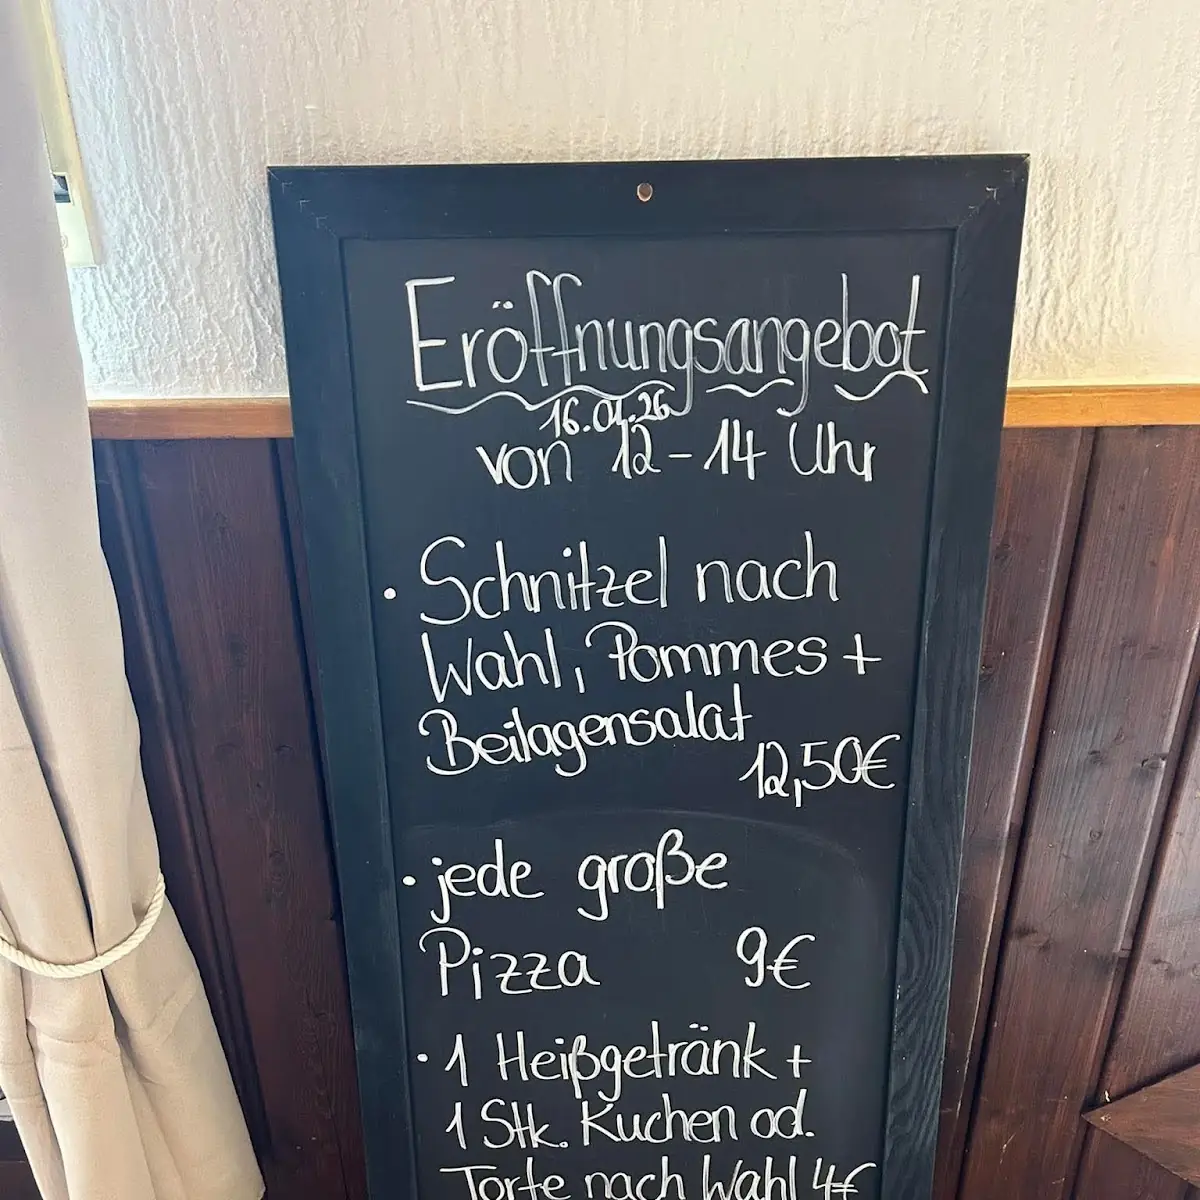 Eröffnungsangebot
16.01.26
von 12-14 Uhr
· Schnitzel nach
Wahl, Pommes +
Beilagensalat
12,50€
· jede große
Pizza 9€
· 1 Heißgetränk +
1 Stk. Kuchen od.
Torte nach Wahl 4€